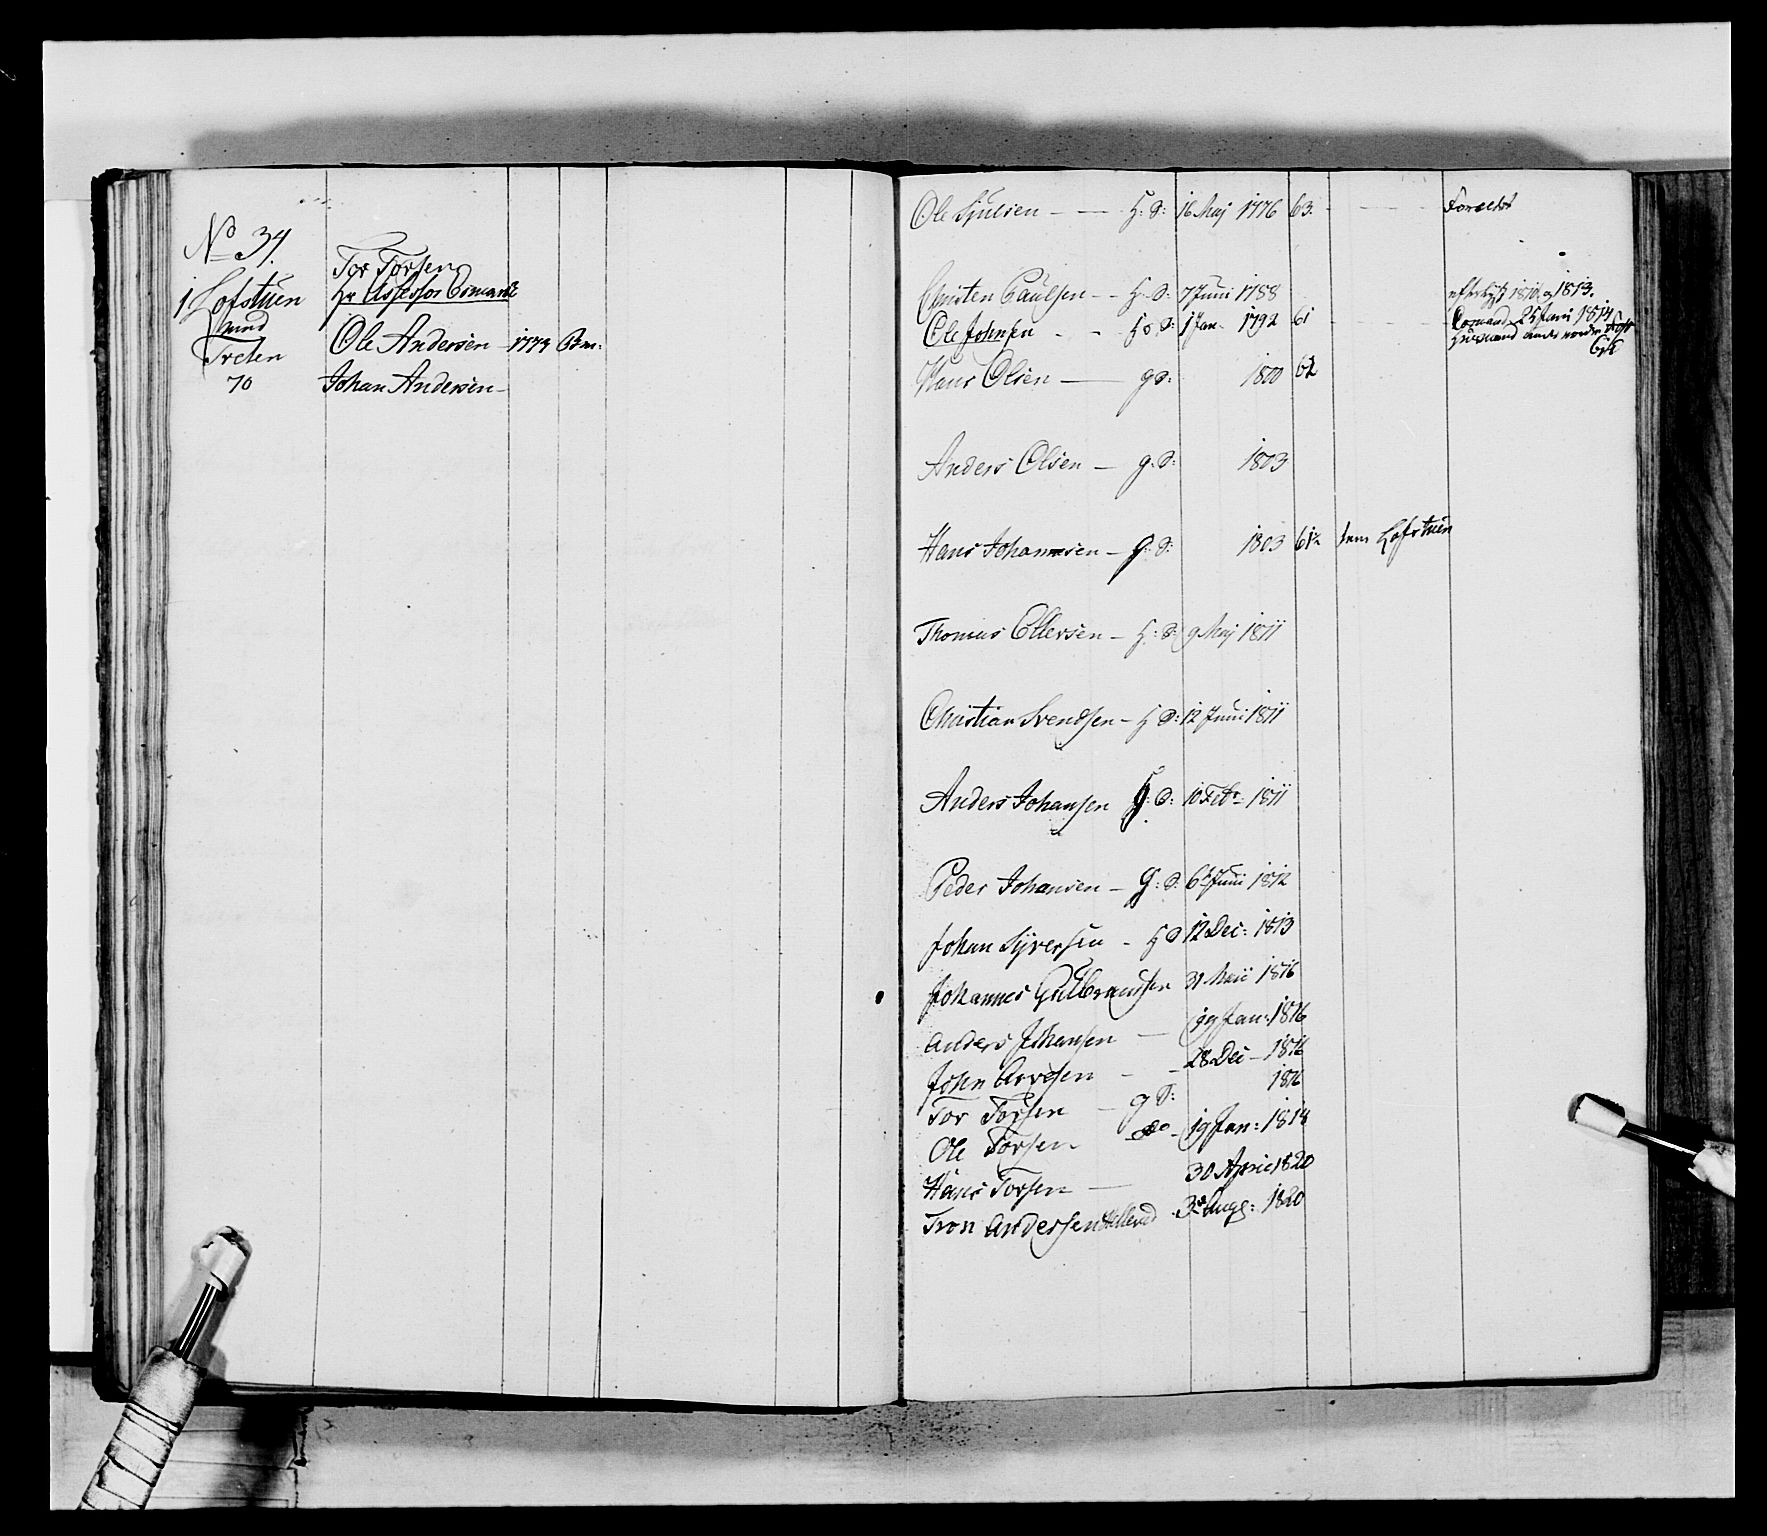 No 34.
Tor Torsen
1 Lofstuen Hr Assessor Esmark
Lund
Ole Andersen - 1774 Bm:
Treten
70 Johan Andersen -
Ole Siulsen - - H: S: 16 Maj 1776 63. - - - Foreldet
Christen Paulsen - - H: S: 7 Juni 1788 1810 og 1813.
Ole Johnsen - - H S: 1 Jan. 1792 61 - - - 25 Juni 1814
Huusmand
Hans Olsen - g S: 1800 62
Anders Olsen - g: S: 1803
Hans Johannesen - G: S: 1803 61 1/2 Lofstuen
Thomas Ellersen - H: S: 9 Maj 1811
Christian Svendsen - H S: 12 Juni 1811
Anders Johansen G: S: 10 Febr 1811
Peder Johansen - G: S: 6 Juni 1812
Johan Syversen - H S 12 Dec: 1813
Johannes Gulbrandsen 31 Maii 1816
Anders Johansen - 19 Jan: 1816
John Arvesen - - 28 Dec - 1816
Tor Torsen - g S: 1816
Ole Torsen do - 19 Jan: 1818
Hans Torsen - 30 April 1820
Tron Andersen 3 Aug: 1820